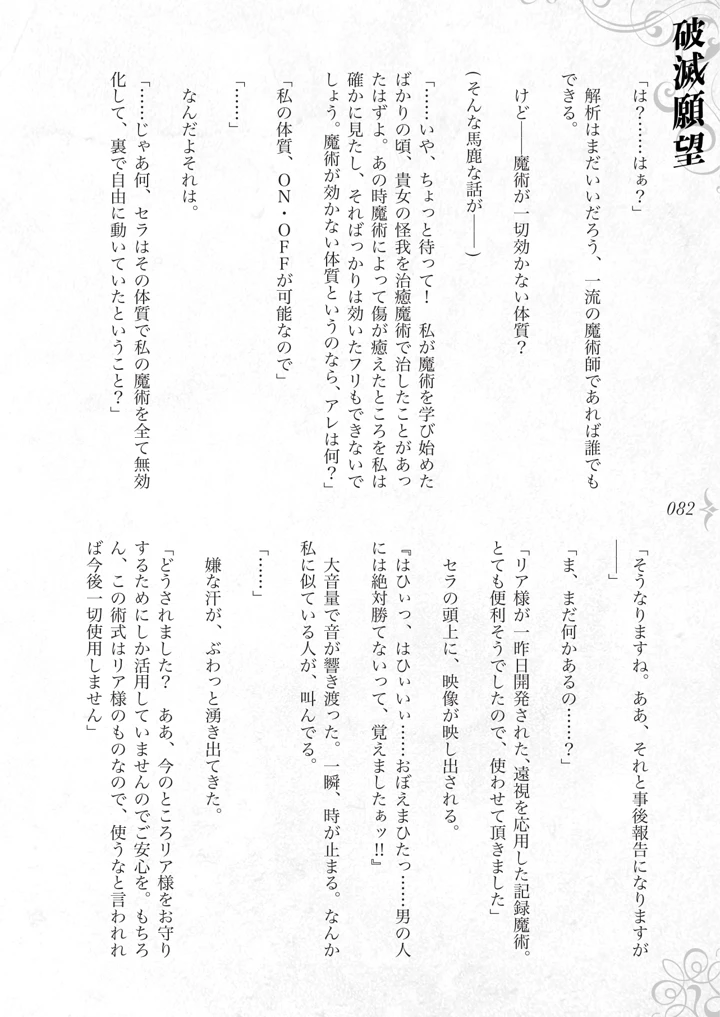 破滅願望
「は？……はぁ？」
　解析はまだいいだろう、一流の魔術師であれば誰でも
できる。
　けど――魔術が一切効かない体質？
(そんな馬鹿な話が――)
「……いや、ちょっと待って！　私が魔術を学び始めた
ばかりの頃、貴女の怪我を治癒魔術で治したことがあっ
たはずよ。あの時魔術によって傷が癒えたところを私は
確かに見たし、そればっかりは効いたフリもできないで
しょう。魔術が効かない体質というのなら、アレは何？」
「私の体質、ON・OFFが可能なので」
「……」
　なんだよそれは。
「……じゃあ何、セラはその体質で私の魔術を全て無効
化して、裏で自由に動いていたということ？」
082
「そうなりますね。ああ、それと事後報告になりますが
――」
「ま、まだ何かあるの……？」
「リア様が一昨日開発された、遠視を応用した記録魔術。
とても便利そうでしたので、使わせて頂きました」
　セラの頭上に、映像が映し出される。
『はひぃっ、はひぃいぃ……おぼえまひたっ……男の人
には絶対勝てないって、覚えましたぁッ!!』
　大音量で音が響き渡った。一瞬、時が止まる。なんか
私に似ている人が、叫んでる。
「……」
　嫌な汗が、ぶわっと湧き出てきた。
「どうされました？　ああ、今のところリア様をお守り
するためにしか活用していませんのでご安心を。もちろ
ん、この術式はリア様のものなので、使うなと言われれ
ば今後一切使用しません」